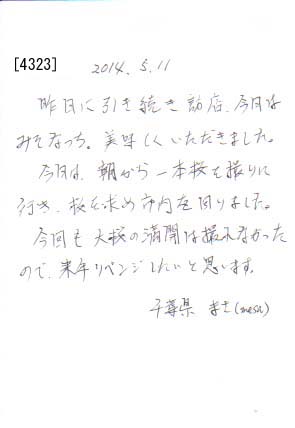 [4323] 2014.5.11
昨日に引き続き訪店、今日は
みそなっち。美味しくいただきました。
今日は、朝から一本桜を撮りに
行き、桜を求め市内を回りました。
今回も大桜の満開は撮れなかった
ので、来年リベンジしたいと思います。
千葉県 まさ(masa)